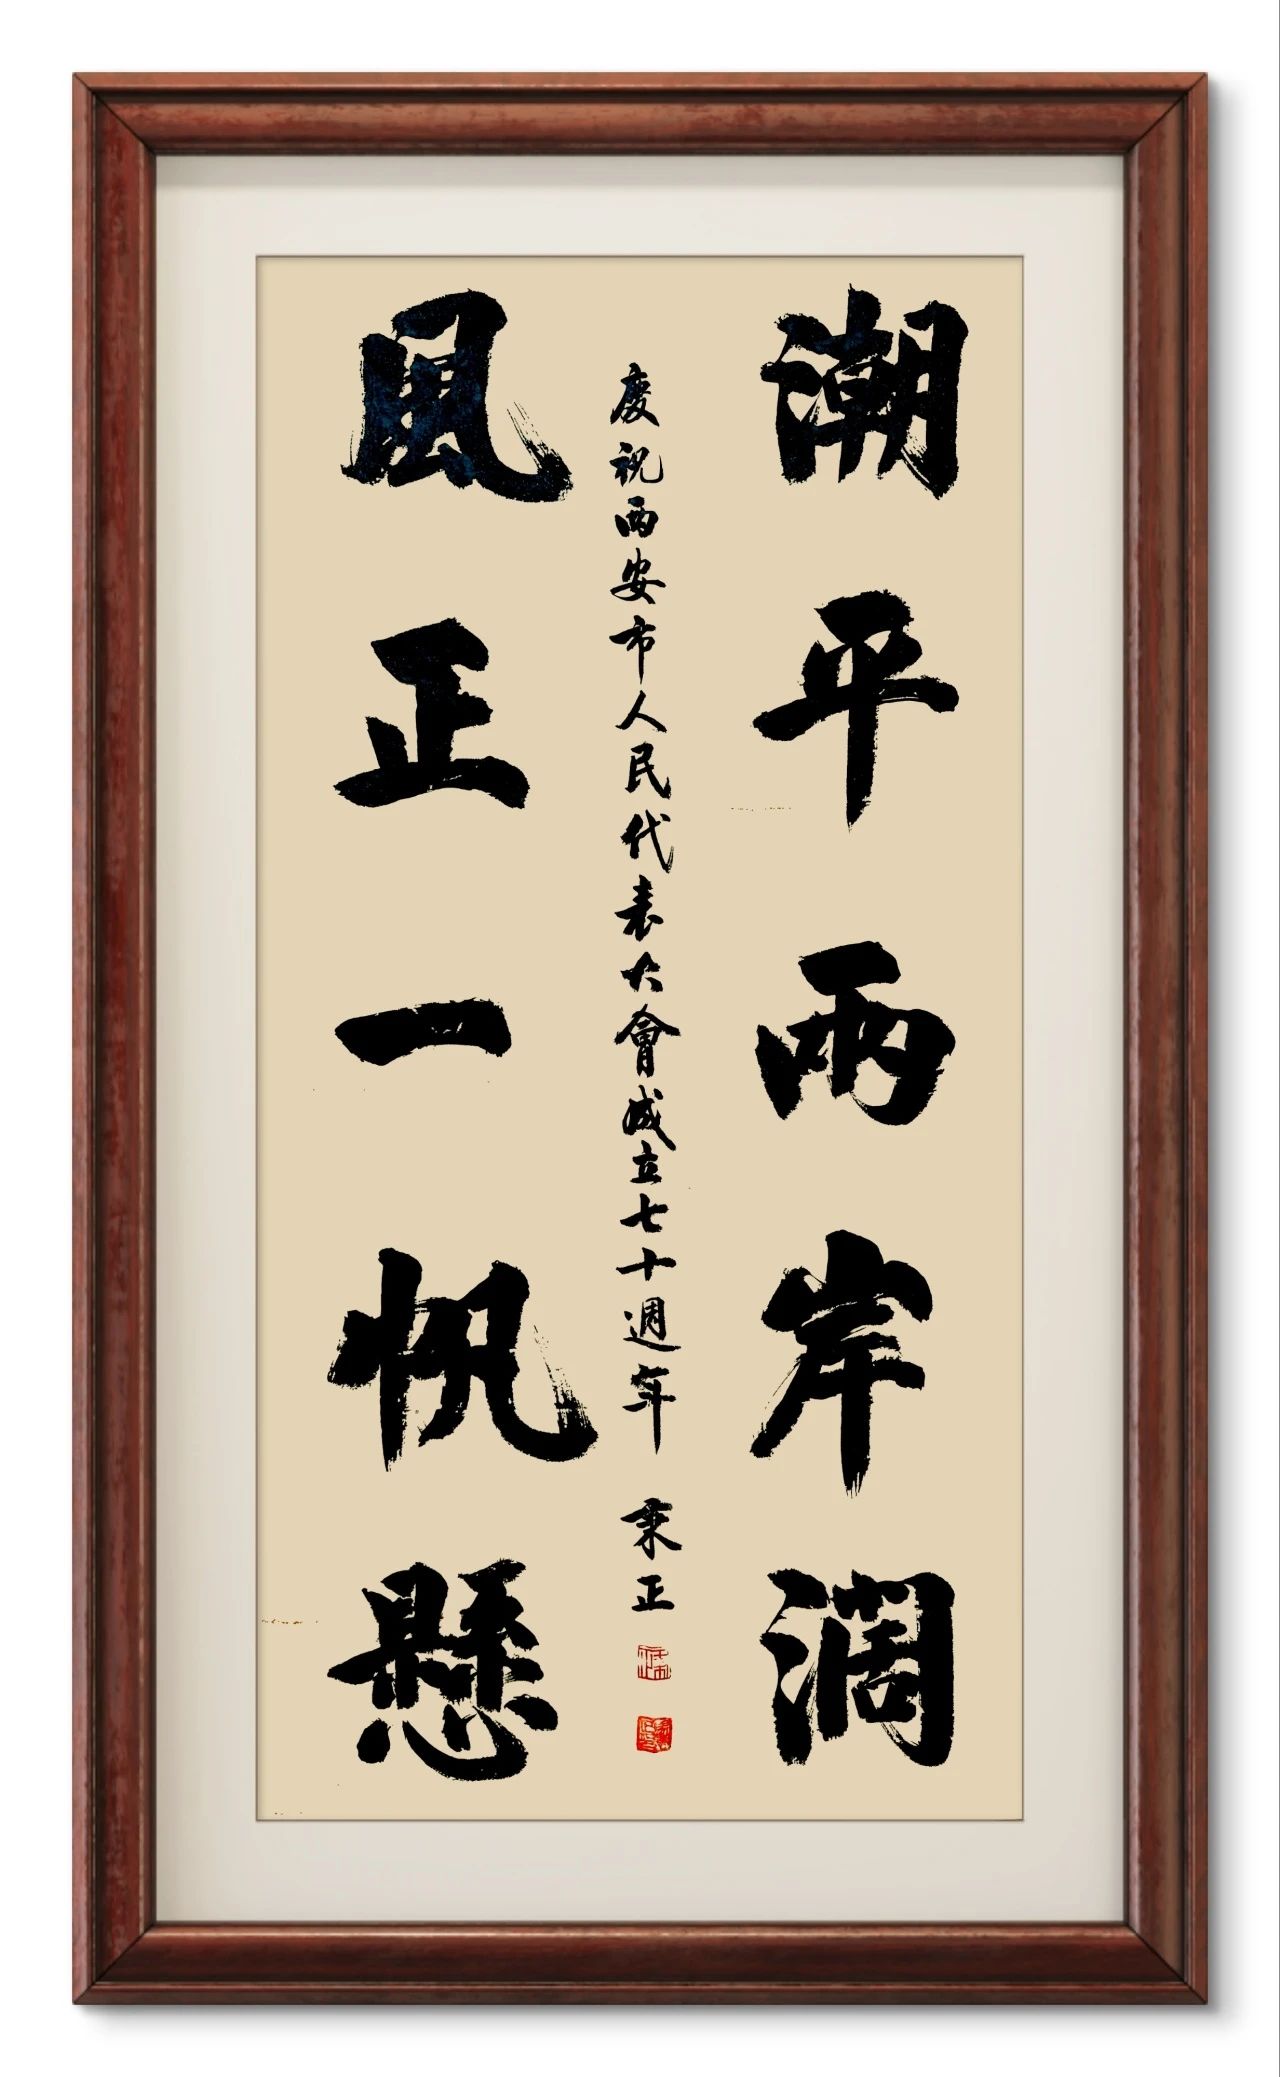 潮平兩岸闊
風正一帆懸
慶祝西安市人民代表大會成立七十週年
秉正